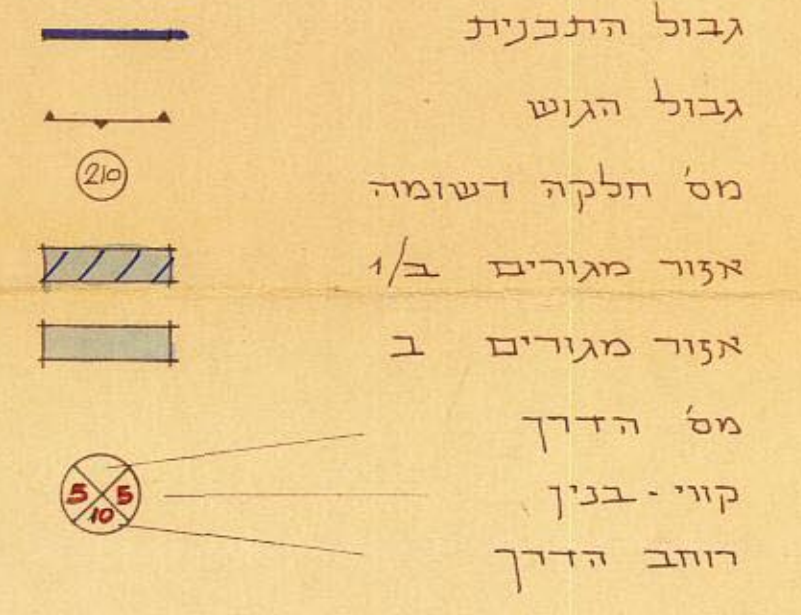 גבול התכנית
גבול הגוש
210 מס' חלקה רשומה
אזור מגורים ב/1
אזור מגורים ב
מס' הדרך
קווי - בנין 5 5
רוחב הדרך 10